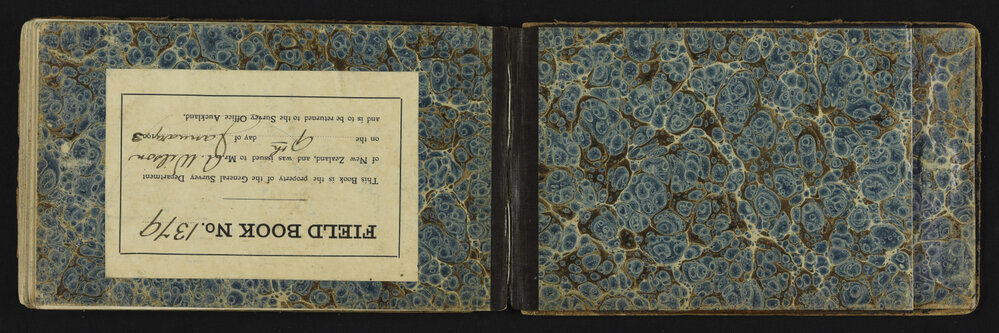 FIELD BOOK No. 1379
This Book is the property of the General Survey Department
of New Zealand, and was issued to Mr. A Wilson
on the 9th day of January 1903
and is to be returned to the Survey Office Auckland.